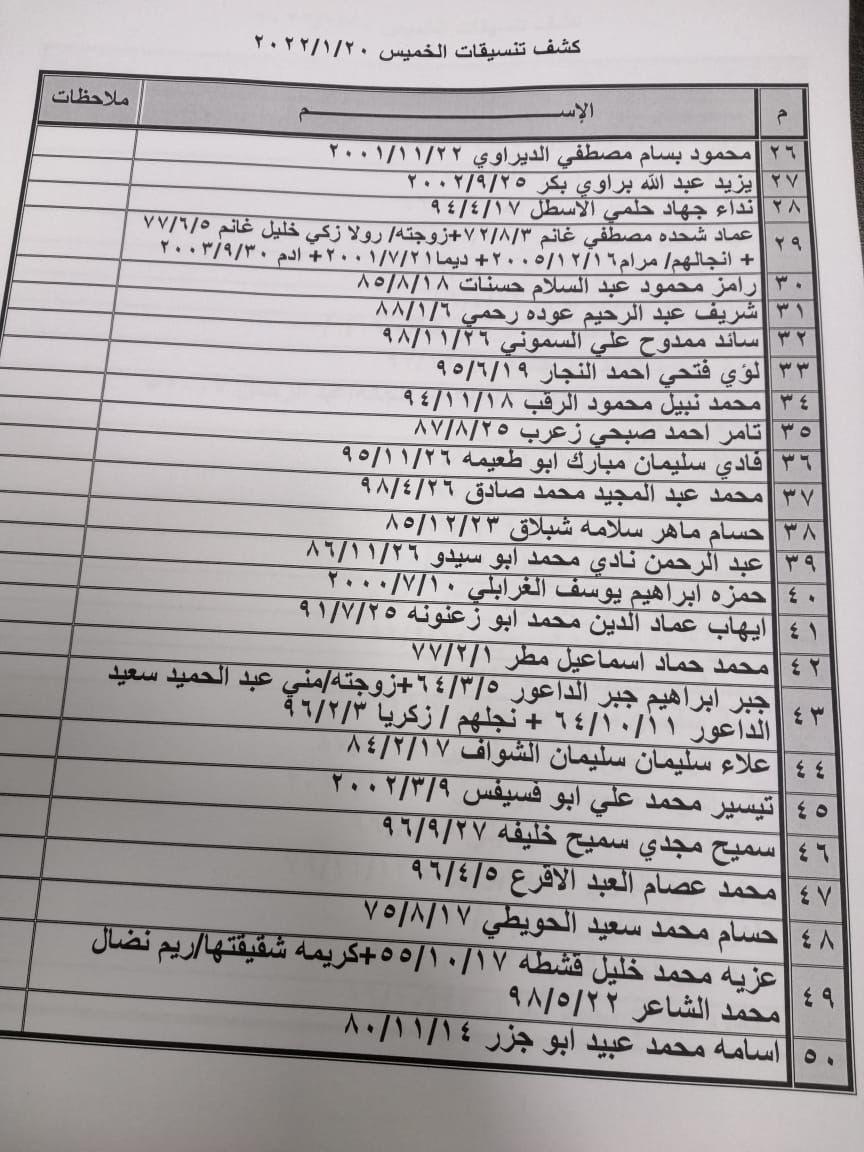 كشف تنسيقات الخميس ٢٠٢٢/١/٢٠
م الإســـــــــم ملاحظات
٢٦ محمود بسام مصطفي الديراوي ٢٠٠١/١١/٢٢
٢٧ يزيد عبد الله براوي بكر ٢٠٠٢/٩/٢٥
٢٨ نداء جهاد حلمي الاسطل ٩٤/٤/١٧
٢٩ عماد شحده مصطفي غانم ٧٢/٨/٣+زوجته/ رولا زكي خليل غانم ٧٧/٦/٥
+ انجالهم/ مرام٢٠٠٥/١٢/١٦+ ديما٢٠٠١/٧/٢١+ ادم ٢٠٠٣/٩/٣٠
٣٠ رامز محمود عبد السلام حسنات ٨٥/٨/١٨
٣١ شريف عبد الرحيم عوده رحمي ٨٨/١/٦
٣٢ سائد ممدوح علي السموني ٩٨/١١/٢٦
٣٣ لؤي فتحي احمد النجار ٩٥/٦/١٩
٣٤ محمد نبيل محمود الرقب ٩٤/١١/١٨
٣٥ تامر احمد صبحي زعرب ٨٧/٨/٢٥
٣٦ فادي سليمان مبارك ابو طعيمه ٩٥/١١/٢٦
٣٧ محمد عبد المجيد محمد صادق ٩٨/٤/٢٦
٣٨ حسام ماهر سلامه شبلاق ٨٥/١٢/٢٣
٣٩ عبد الرحمن نادي محمد ابو سيدو ٨٦/١١/٢٦
٤٠ حمزه ابراهيم يوسف الغرابلي ٢٠٠٠/٧/١٠
٤١ ايهاب عماد الدين محمد ابو زعنونه ٩١/٧/٢٥
٤٢ محمد حماد اسماعيل مطر ٧٧/٢/١
٤٣ جبر ابراهيم جبر الداعور ٦٤/٣/٥+زوجته/مني عبد الحميد سعيد
الداعور ٦٤/١٠/١١ + نجلهم / زكريا ٩٦/٢/٣
٤٤ علاء سليمان سليمان الشواف ٨٤/٢/١٧
٤٥ تيسير محمد علي ابو فسيفس ٢٠٠٢/٣/٩
٤٦ سميح مجدي سميح خليفه ٩٦/٩/٢٧
٤٧ محمد عصام العبد الاقرع ٩٦/٤/٥
٤٨ حسام محمد سعيد الحويطي ٧٥/٨/١٧
٤٩ عزيه محمد خليل قشطه ٥٥/١٠/١٧+كريمه شقيقتها/ريم نضال
محمد الشاعر ٩٨/٥/٢٢
٥٠ اسامه محمد عبيد ابو جزر ٨٠/١١/١٤